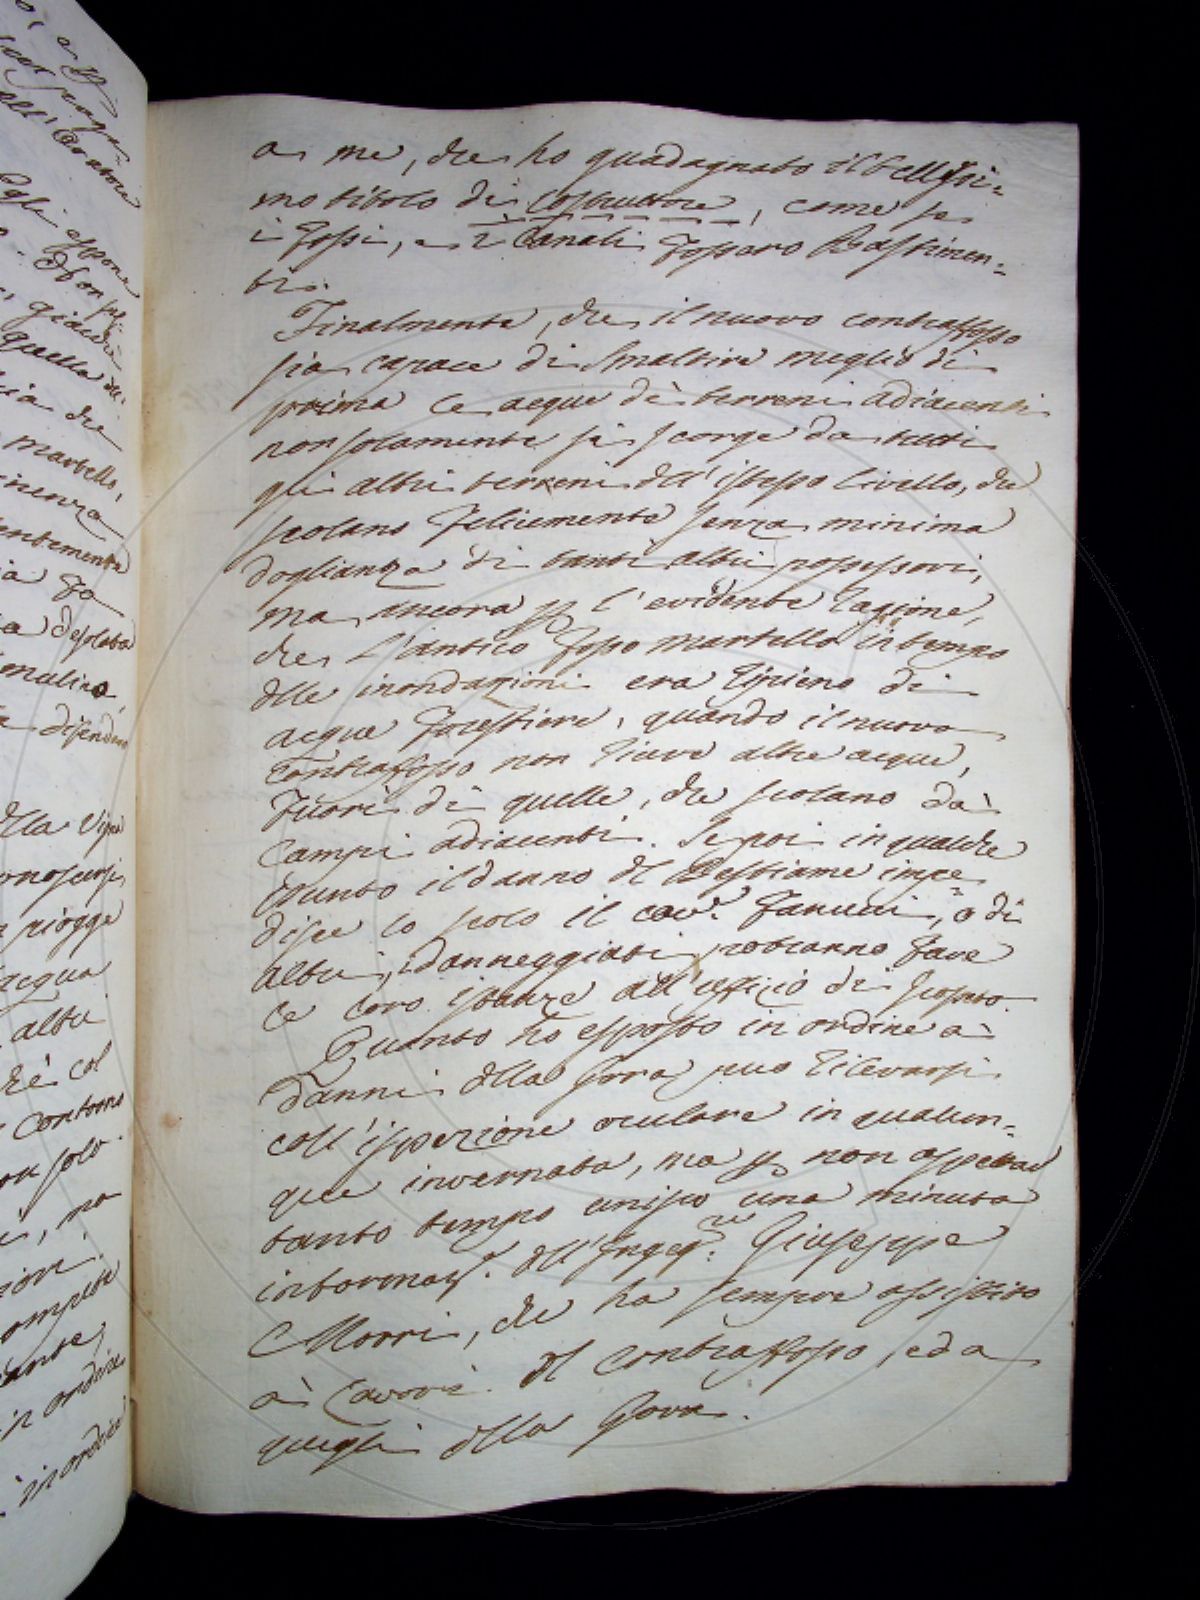 a me, che ho guadagnato il bellissi=
mo titolo di Costruttore, come se
i Fossi, e i Canali fossero Bastimen=
ti.
Finalmente, che il nuovo contrafosso
sia capace di smaltire meglio di
prima le acque dè terreni adiacenti
non solamente si scorge da tutti
gli altri terreni dell'istesso livello, che
scolano felicemente senza minima
doglianza di tanti altri possessori,
ma ancora p l'evidente ragione,
che l'antico Fosso Martello in tempo
delle inondazioni era ripieno di
acque forestiere, quando il nuovo
Contrafosso non riceve altre acque,
fuori di quelle, che scolano dai
Campi adiacenti. Se poi in qualche
punto il danno del Bestiame impe=
disce lo scolo il cav.r Fanucci, o di
altri, i danneggiati potranno fare
le loro istanze all'uffizio di
Quanto ho esposto in ordine a
danni della Gora può rilevarsi
coll'ispezione oculare in qualun=
que invernata, ma p non aspettar
tanto tempo unisco una minuta
informaz.e dell'Ingeg.re Giuseppe
Morri, che ha sempre assistito
ai lavori del Contrafosso, ed a
quegli della Gora.
all'Oratore
Egli espone
quella del
che
Martello,
desolata
mulino,
della
pioggie
acqua
altri
col
contorno
solo
ma
in ordine